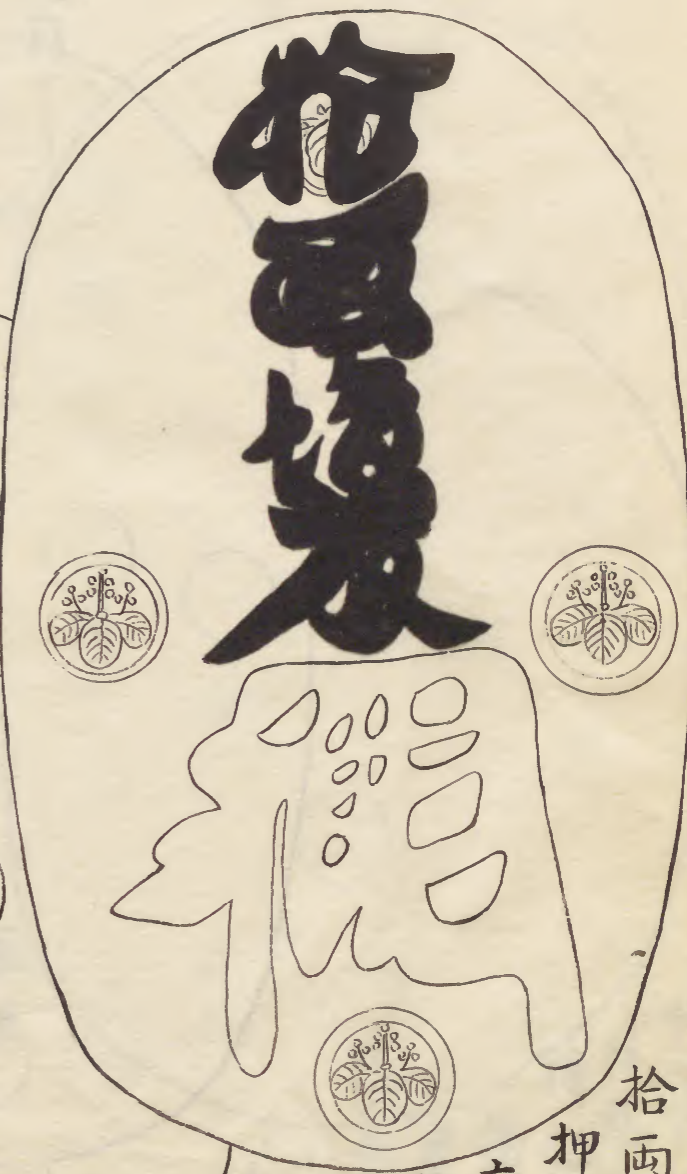 拾両後藤
拾両
押